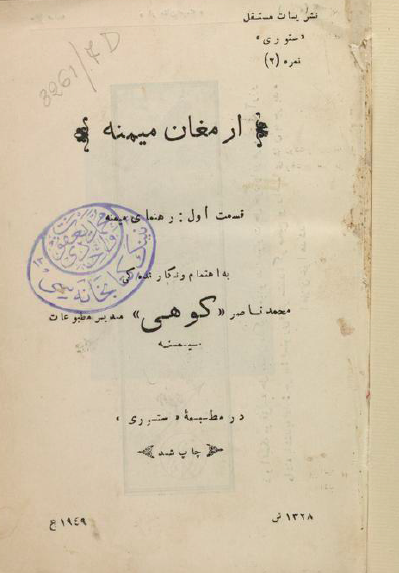 نشریات مستقل
«ستوری»
نمره (۲)
3261/FD
ارمغان میمنه
قسمت اول: رهنمای میمنه
به اهتمام ونگارنده گی
محمد ناصر «کوهی» مدیر مطبوعات
میمنه
در مطبعهٔ «ستوری»
چاپ شد
۱۳۲۸ ش
۱۹٤۹ ع